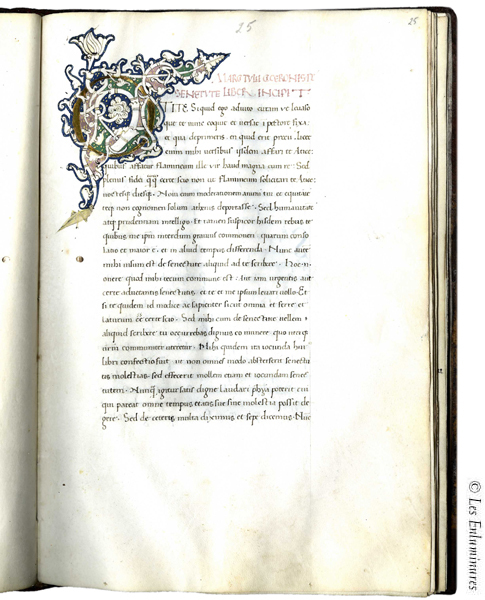 25
25
M. TVLII CICERONIS DE
SENETVTE LIBER INCIPIT
TITE Si quid ego adiuto curam ve levasso
que te nunc coquit et versat i pectore fixa:
et qua deprimeris en quid erit precii licet
enim mihi versibus isdem affari te Attice:
quibus affatur flamineum ille vir haud magna cum re: Sed
plenus fidei qq certe scio non ut flamineum solicitari te Attice
noctesq diesq. Novi enim moderationem animi tui et equitate
teq non cognomen solum athenis deportasse. Sed humanitate
atq prudentiam intelligo. Et tamen suspicor hisdem rebus te
quibus me ipm interdum gravius commoveri quarum conso
latio et maior e. et in aliud tempus differenda. Nunc autē
mihi visum est de senectute aliquid ad te scribere. Hoc
onere quod mihi tecum commune est. aut iam urgentis aut
certe adventantis senectutis. et te et me ipsum levari vollo. Et
si te quidem id modice ac sapienter sicut omnia et ferre et
laturum eē certe scio. Sed mihi cum de senectute nellem
aliquid scribere tu occurrebas dignus eo munere quo uterq
nrm communiter uteretur. Mihi quidem ita iocunda huī
libri confectio fuit ut non omnes modo absterserit senectu
tis molestias sed effecerit mollem etiam et iocundam senec
tutem. Nunq igitur satis digne laudari phya poterit cui
qui pareat omne tempus etatis sue sine molestia possit de
gere. Sed de ceteris multa diximus et sepe dicemus. Nūc
© Les Enluminures